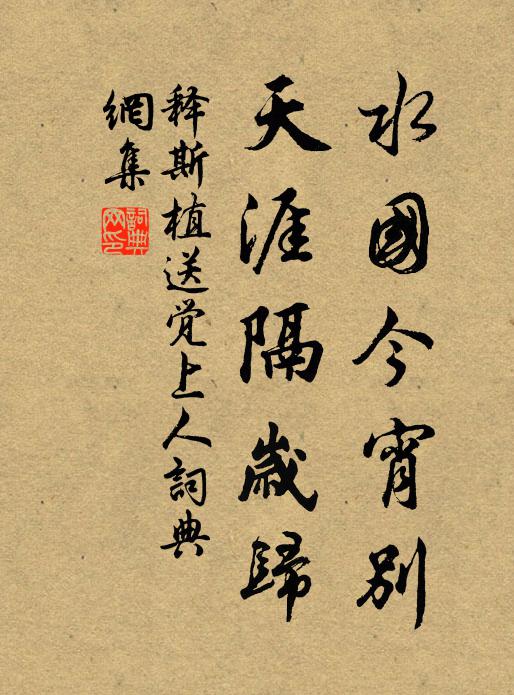 水國今宵別
天涯隔歲歸
释斯植送觉上人詞典
網集
詞典
网印